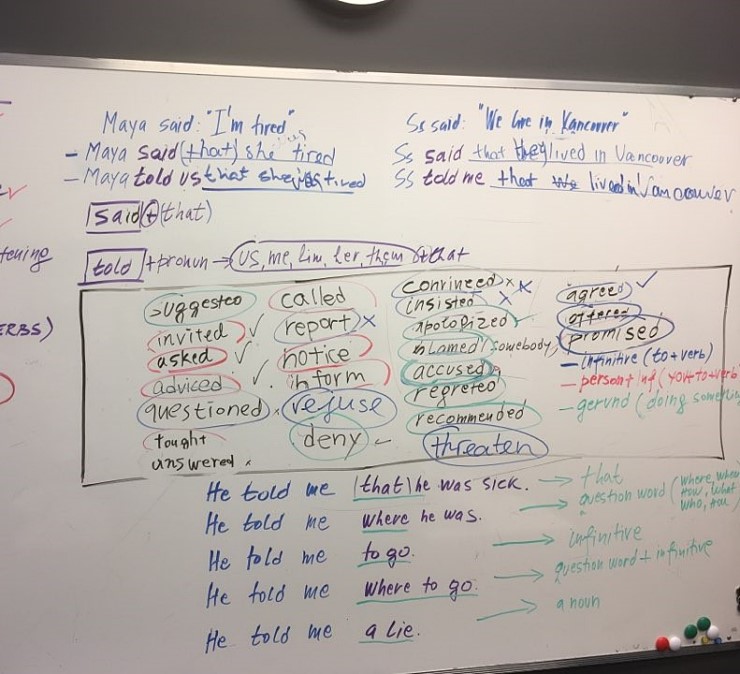 Maya said: "I'm tired"
Ss said: "We live in Vancouver"
- Maya said (that) she tired
Ss said that they lived in Vancoover
- Maya told us that she was tired
Ss told me that lived in Vancouver
said + (that)
told + pronun → us, me, him, her, them + that
tening
ERBS)
suggested called convinced x x agreed ✓
invited ✓ report x insisted x offered
asked ✓ notice apologized ✓ promised
adviced ✓ inform blamed somebody - infinitive (to+verb)
questioned x refuse accused - person + inf (you+to+verb
tought deny regreted - gerund (doing something
unswered x threaten recommended
He told me (that) he was sick. → that
He told me where he was. → question word (where, when
How, What
Who,
He told me to go. → infinitive
He told me where to go. → question word + infinitive
He told me a lie. → a noun